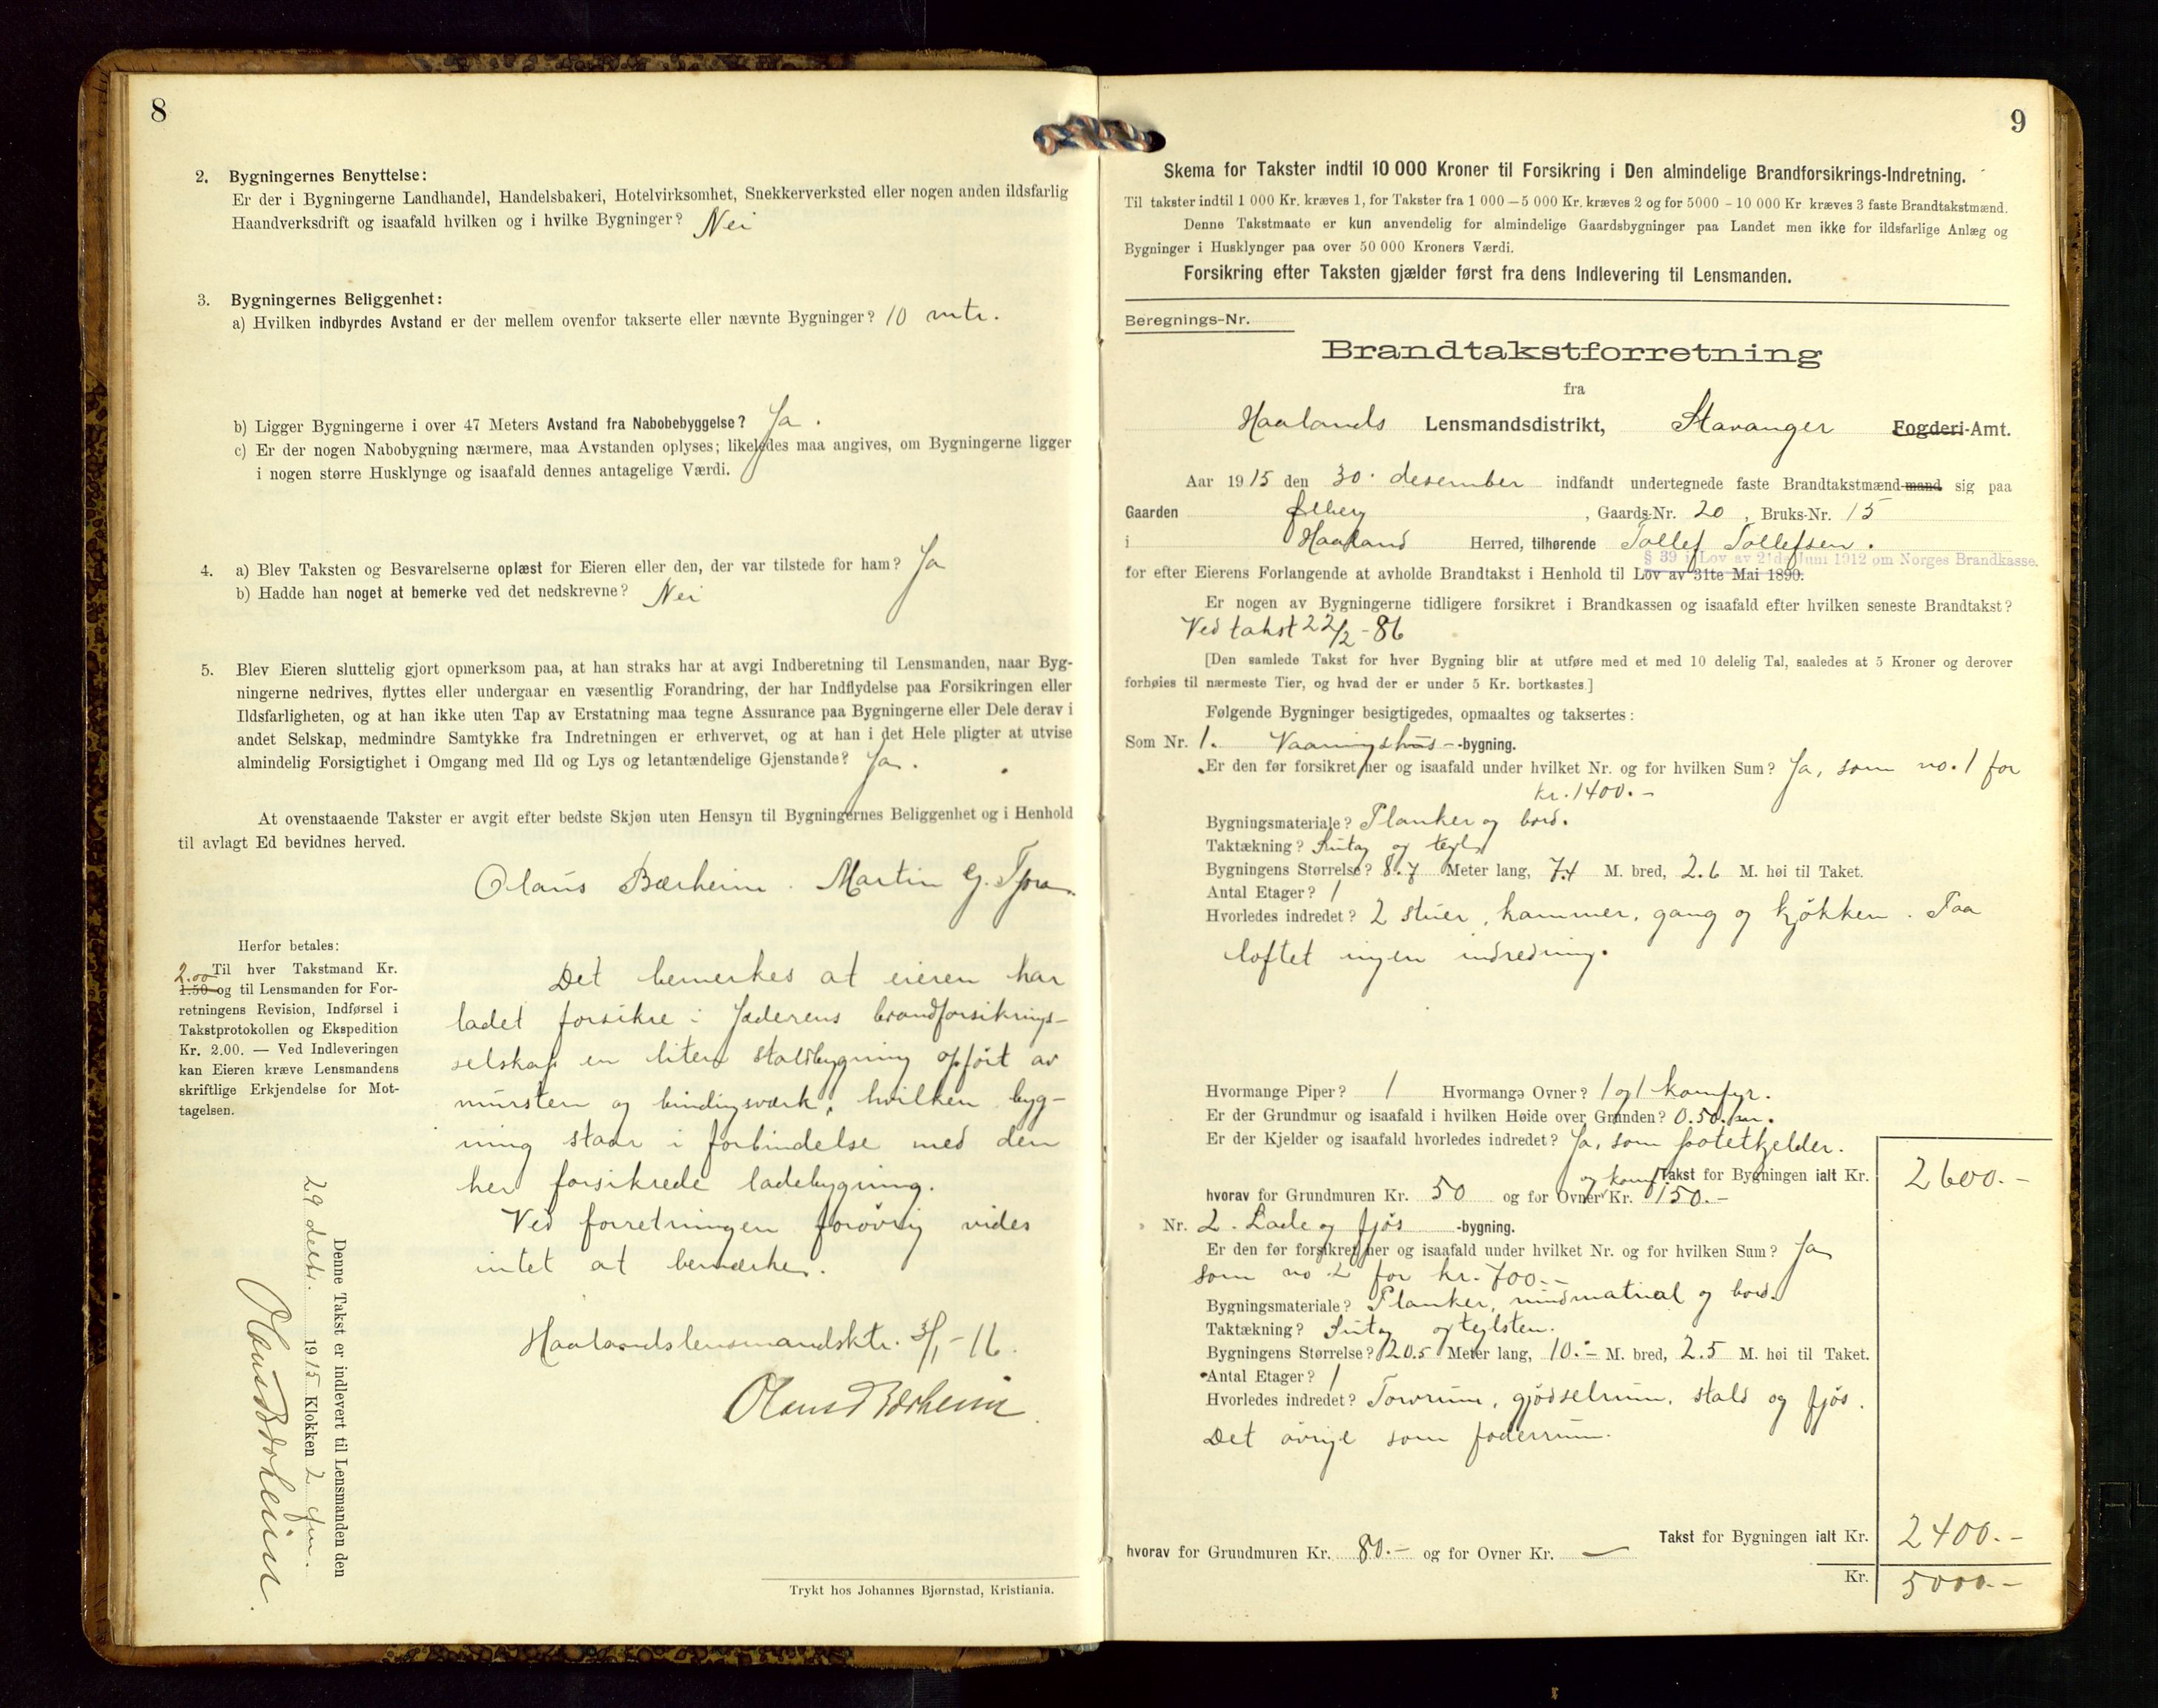 8
2. Bygningernes Benyttelse:
Er der i Bygningerne Landhandel, Handelsbakeri, Hotelvirksomhet, Snekkerverksted eller nogen anden ildsfarlig
Haandverksdrift og isaafald hvilken og i hvilke Bygninger? Nei
3. Bygningernes Beliggenhet:
a) Hvilken indbyrdes Avstand er der mellem ovenfor takserte eller nævnte Bygninger? 10 mtr.
b) Ligger Bygningerne i over 47 Meters Avstand fra Nabobebyggelse? Ja.
c) Er der nogen Nabobygning nærmere, maa Avstanden oplyses; likeledes maa angives, om Bygningerne ligger
i nogen større Husklynge og isaafald dennes antagelige Værdi.
4. a) Blev Taksten og Besvarelserne oplæst for Eieren eller den, der var tilstede for ham? Ja
b) Hadde han noget at bemerke ved det nedskrevne? Nei
5. Blev Eieren sluttelig gjort opmerksom paa, at han straks har at avgi Indberetning til Lensmanden, naar Byg-
ningerne nedrives, flyttes eller undergaar en væsentlig Forandring, der har Indflydelse paa Forsikringen eller
Ildsfarligheten, og at han ikke uten Tap av Erstatning maa tegne Assurance paa Bygningerne eller Dele derav i
andet Selskap, medmindre Samtykke fra Indretningen er erhvervet, og at han i det Hele pligter at utvise
almindelig Forsigtighet i Omgang med Ild og Lys og letantændelige Gjenstande? Ja.
At ovenstaaende Takster er avgit efter bedste Skjøn uten Hensyn til Bygningernes Beliggenhet og i Henhold
til avlagt Ed bevidnes herved.
Olaus Bærheim. Martin G. Tjora
Herfor betales:
2.00 Til hver Takstmand Kr.
1.50 og til Lensmanden for For-
retningens Revision, Indførsel i
Takstprotokollen og Ekspedition
Kr. 2.00. — Ved Indleveringen
kan Eieren kræve Lensmandens
skriftlige Erkjendelse for Mot-
tagelsen.
Det bemerkes at eieren har
ladet forsikre i Jæderens brandforsikrings-
selskap en liten staldbygning opført av
mursten og bindingsværk, hvilken byg-
ning staar i forbindelse med den
her forsikrede ladebygning.
Ved forretningen forøvrig vides
intet at bemærke.
Haalands lensmandsktr. 3/1-16.
Olaus Bærheim
Denne Takst er indlevert til Lensmanden den
29 desbr. 1915 Klokken 2 efm.
Olaus Bærheim.
Trykt hos Johannes Bjørnstad, Kristiania.
9
Skema for Takster indtil 10 000 Kroner til Forsikring i Den almindelige Brandforsikrings-Indretning.
Til takster indtil 1 000 Kr. kræves 1, for Takster fra 1 000 — 5 000 Kr. kræves 2 og for 5000 - 10 000 Kr kræves 3 faste Brandtakstmænd.
Denne Takstmaate er kun anvendelig for almindelige Gaardsbygninger paa Landet men ikke for ildsfarlige Anlæg og
Bygninger i Husklynger paa over 50 000 Kroners Værdi.
Forsikring efter Taksten gjælder først fra dens Indlevering til Lensmanden.
Beregnings-Nr.
Brandtakstforretning
fra
Haalands Lensmandsdistrikt, Stavanger Fogderi-Amt.
Aar 1915 den 30. desember indfandt undertegnede faste Brandtakstmænd-mand sig paa
Gaarden Ølberg, Gaards-Nr. 20, Bruks-Nr. 15
i Haaland Herred, tilhørende Tollef Tollefsen.
§ 39 i Lov av 21de Juni 1912 om Norges Brandkasse.
for efter Eierens Forlangende at avholde Brandtakst i Henhold til Lov av 31te Mai 1890.
Er nogen av Bygningerne tidligere forsikret i Brandkassen og isaafald efter hvilken seneste Brandtakst?
Ved takst 22/2-86
[Den samlede Takst for hver Bygning blir at utføre med et med 10 delelig Tal, saaledes at 5 Kroner og derover
forhøies til nærmeste Tier, og hvad der er under 5 Kr. bortkastes]
Følgende Bygninger besigtigedes, opmaaltes og taksertes:
Som Nr. 1. Vaaningshus- -bygning.
Er den før forsikret her og isaafald under hvilket Nr. og for hvilken Sum? Ja, som no. 1 for
kr. 1400.-
Bygningsmateriale? Planker og bord.
Taktækning? Sutag og tegl
Bygningens Størrelse? 8.7 Meter lang, 7.4 M. bred, 2.6 M. høi til Taket.
Antal Etager? 1
Hvorledes indredet? 2 stuer, kammer, gang og kjøkken. Paa
loftet ingen indredning.
Hvormange Piper? 1 Hvormange Ovner? 1 og 1 komfyr.
Er der Grundmur og isaafald i hvilken Høide over Grunden? 0.50. m.
Er der Kjelder og isaafald hvorledes indredet? Ja, som potetkjelder.
Takst for Bygningen ialt Kr. 2600.-
hvorav for Grundmuren Kr. 50 og for Ovner og komf Kr. 150.-
Nr. 2. Lade og fjøs -bygning.
Er den før forsikret her og isaafald under hvilket Nr. og for hvilken Sum? Ja
som no 2 for kr. 700.-
Bygningsmateriale? Planker, mindmatrial og bord.
Taktækning? Sutag og teglsten.
Bygningens Størrelse? 20.5 Meter lang, 10.- M. bred, 2.5 M. høi til Taket.
Antal Etager? 1
Hvorledes indredet? Torvrum, gjødselrum, stald og fjøs.
Det øvrige som foderrum.
Takst for Bygningen ialt Kr. 2400.-
hvorav for Grundmuren Kr. 80.- og for Ovner Kr. —
Kr. 5000.-